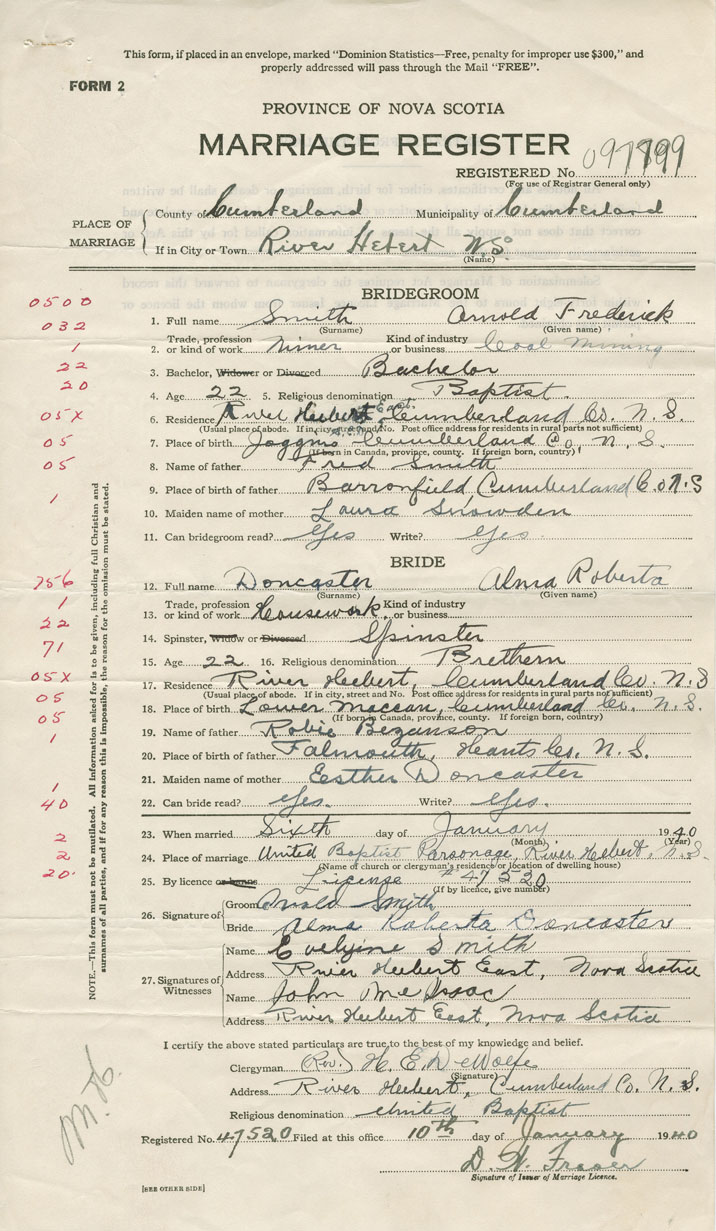 This form, if placed in an envelope, marked "Dominion Statistics—Free, penalty for improper use $300," and
properly addressed will pass through the Mail "FREE".
FORM 2
PROVINCE OF NOVA SCOTIA
MARRIAGE REGISTER
REGISTERED No
(For use of Registrar General only)
PLACE OF MARRIAGE
County of Cumberland Municipality of Cumberland
If in City or Town River Hebert N.S.
(Name)
BRIDEGROOM
0500
1. Full name Smith Arnold Frederick
(Surname) (Given name)
032
2. Trade, profession or kind of work Miner Kind of industry or business Coal Mining
1
3. Bachelor, Widower or Divorced Bachelor
22
4. Age 22 5. Religious denomination Baptist
20
6. Residence River Hebert East, Cumberland Co. N.S.
(Usual place of abode. If in city, street and No. Post office address for residents in rural parts not sufficient)
05X
7. Place of birth Joggins Cumberland Co, N.S.
(If born in Canada, province, county. If foreign born, country)
05
8. Name of father Fred Smith
05
9. Place of birth of father Barronfield, Cumberland Co N S
1
10. Maiden name of mother Laura Snowden
11. Can bridegroom read? Yes Write? Yes.
BRIDE
756
12. Full name Doncaster Alma Roberta
(Surname) (Given name)
1
13. Trade, profession or kind of work Housework. Kind of industry or business
22
14. Spinster, Widow or Divorced Spinster
71
15. Age 22 16. Religious denomination Brethern
05X
17. Residence River Hebert, Cumberland Co. N.S
(Usual place of abode. If in city, street and No. Post office address for residents in rural parts not sufficient)
05
18. Place of birth Lower Maccan, Cumberland Co. N.S.
(If born in Canada, province, county. If foreign born, country)
05
19. Name of father Robie Bezanson
1
20. Place of birth of father Falmouth, Hants Co. N.S.
21. Maiden name of mother Esther Doncaster
1
22. Can bride read? Yes. Write? Yes.
40
23. When married Sixth day of January 1940
(Month) (Year)
2
24. Place of marriage United Baptist Parsonage, River Hebert, N.S.
(Name of church or clergyman's residence or location of dwelling house)
2
20.
25. By licence or banns License # 47520
(If by licence, give number)
26. Signature of
Groom Arnold Smith
Bride Alma Roberta Doncaster
27. Signatures of Witnesses
Name Evelyine Smith
Address River Hebert East, Nova Scotia
Name John McIsaac
Address River Hebert East, Nova Scotia
I certify the above stated particulars are true to the best of my knowledge and belief.
Clergyman (Rev.) H. E. DeWolfe
(Signature)
Address River Hebert, Cumberland Co. N.S.
Religious denomination United Baptist
Registered No. 47520 Filed at this office 10th day of January 1940
D. W. Fraser
Signature of Issuer of Marriage Licence.
[SEE OTHER SIDE]
NOTE.—This form must not be mutilated. All information asked for is to be given, including full Christian and
surnames of all parties, and if for any reason this is impossible, the reason for the omission must be stated.